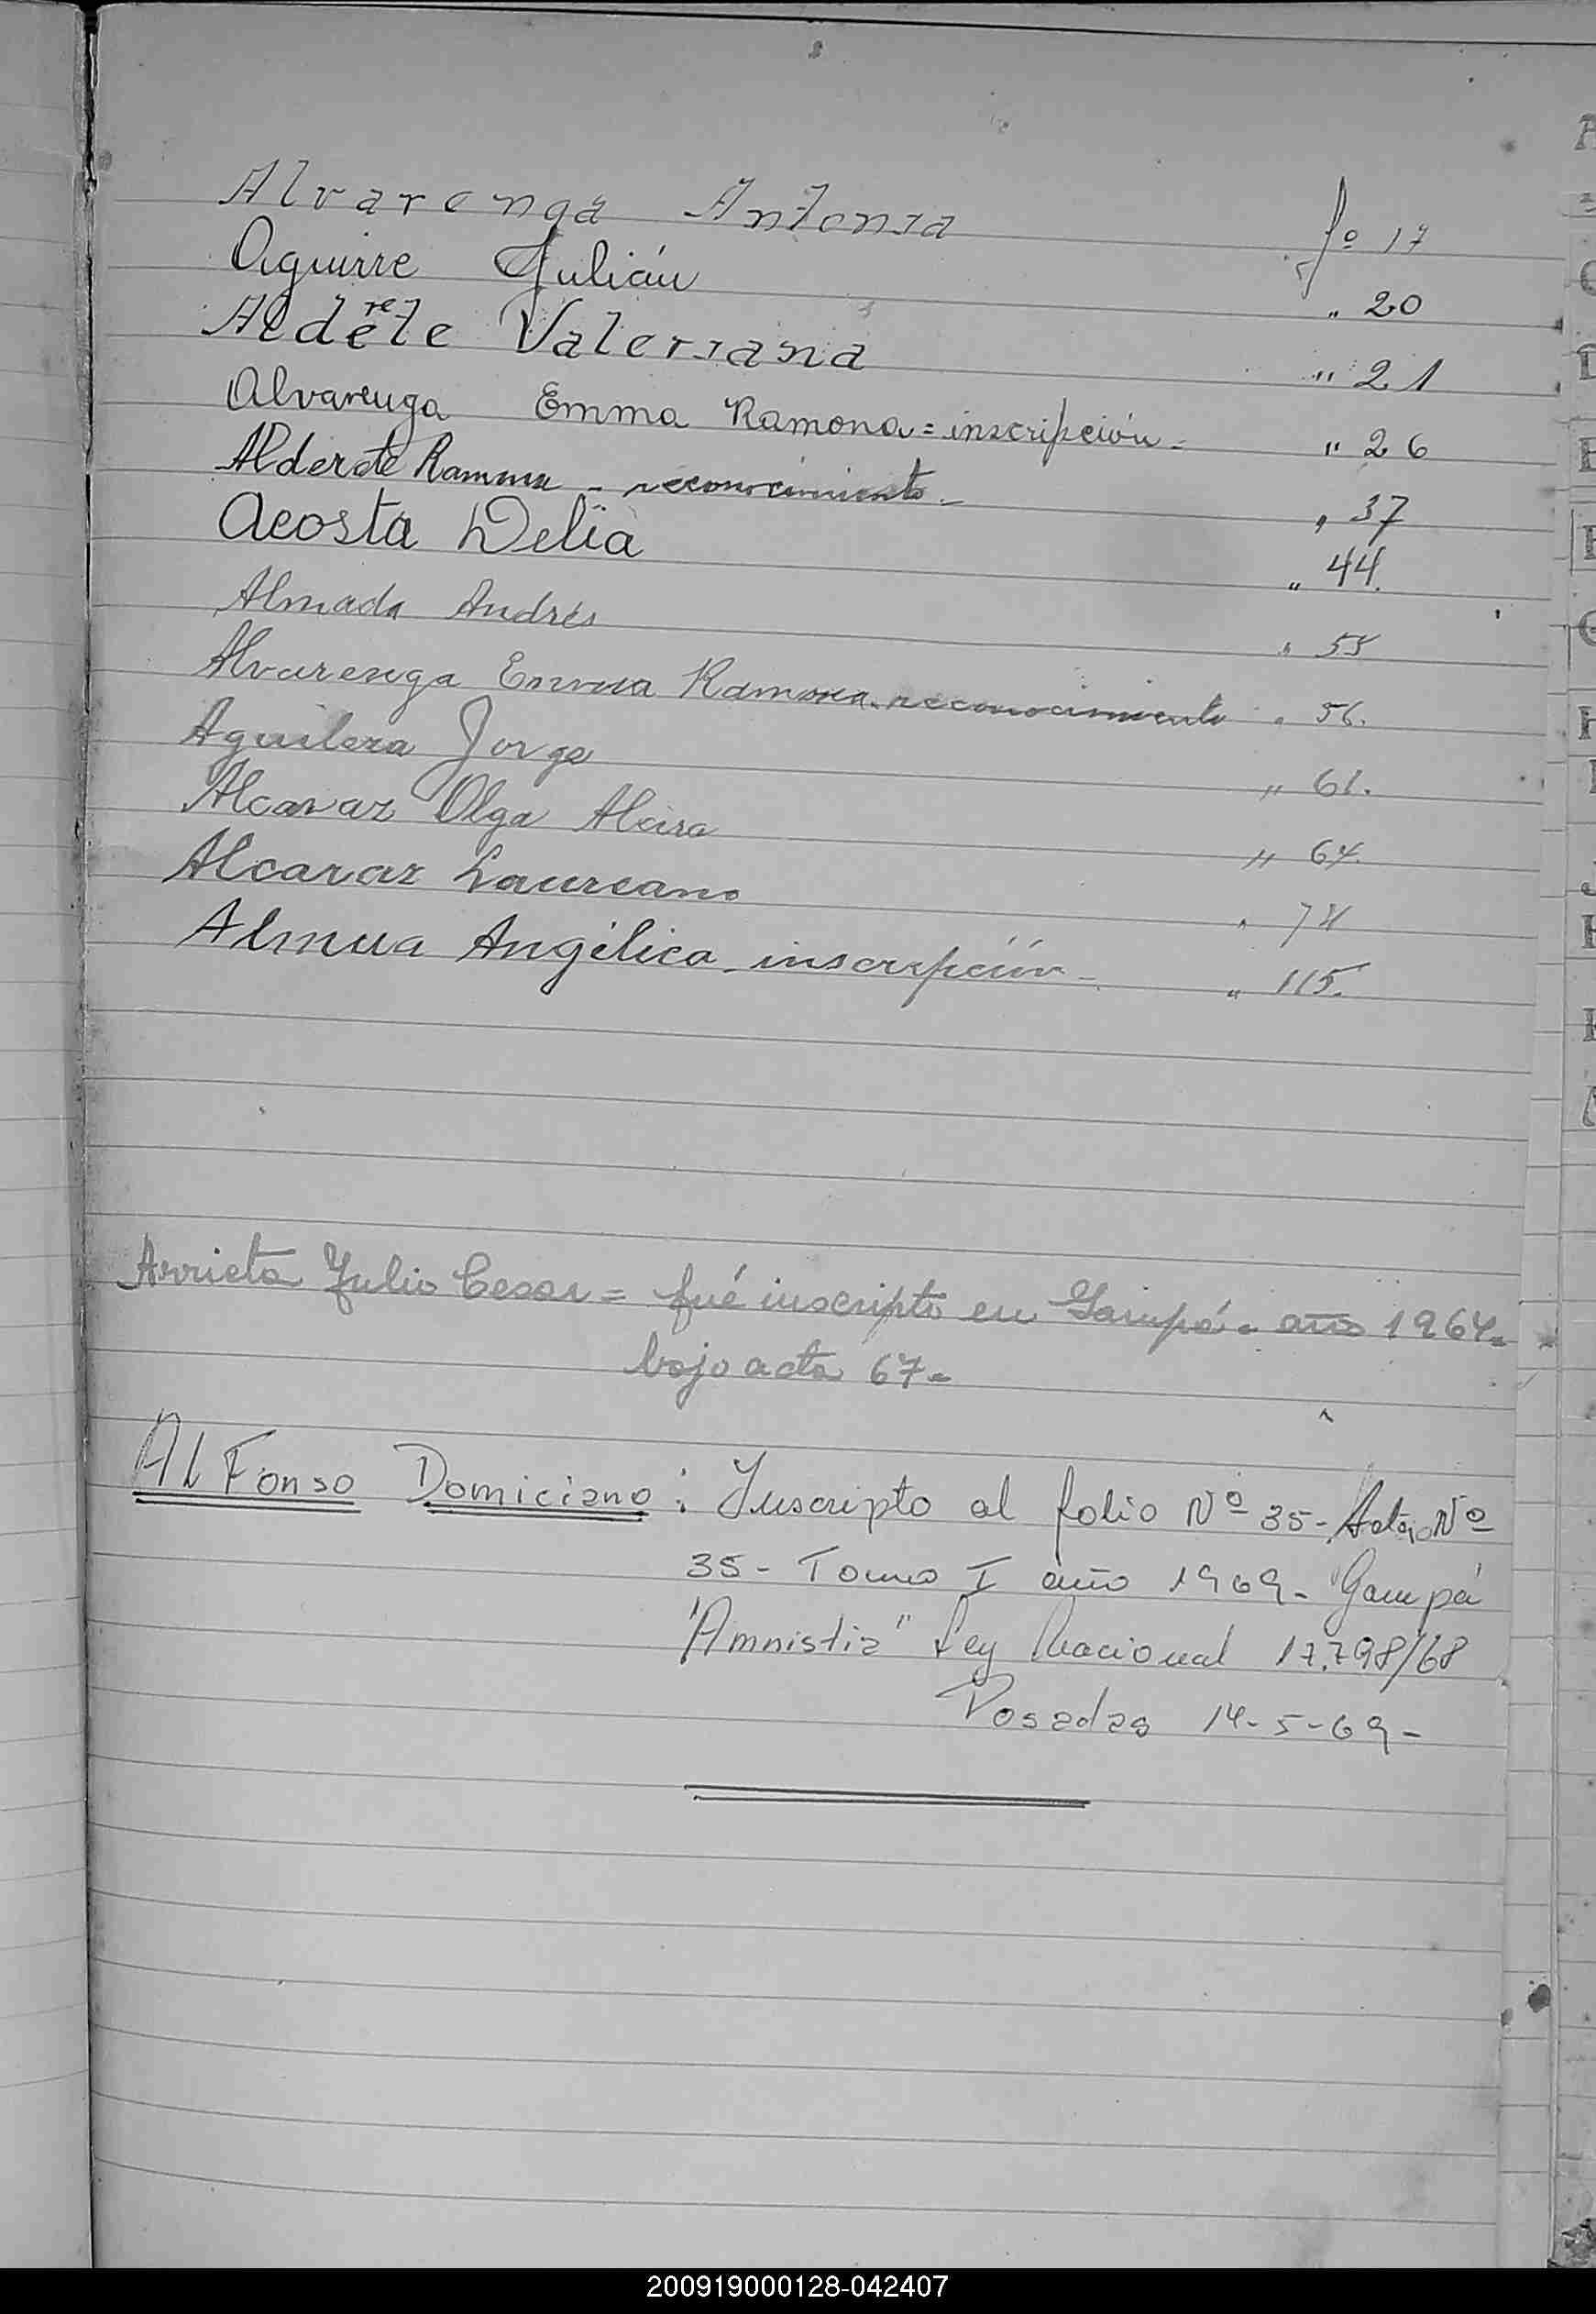 Alvarenga Antonia fº 17
Aguirre Julián " 20
Alderete Valeriana " 21
Alvarenga Emma Ramona = inscripción - " 26
Alderete Ramona - reconocimiento - " 37
Acosta Delia " 44.
Almada Andrés " 55
Alvarenga Emma Ramona. reconocimiento " 56.
Aguilera Jorge " 61.
Alcaraz Olga Alcira " 64.
Alcaraz Laureano "
Almua Angélica - inscripción - " 115.
Arrieta Julio Cesar = fué inscripto en Garupá - año 1964 -
bajo acta 67 -
ALFonso Domiciano : Inscripto al folio Nº 35 - Acta Nº
35 - Tomo I año 1969 - Garupá
"Amnistia" Ley Nacional 17.798/68
Posadas 14-5-69 -
200919000128-042407